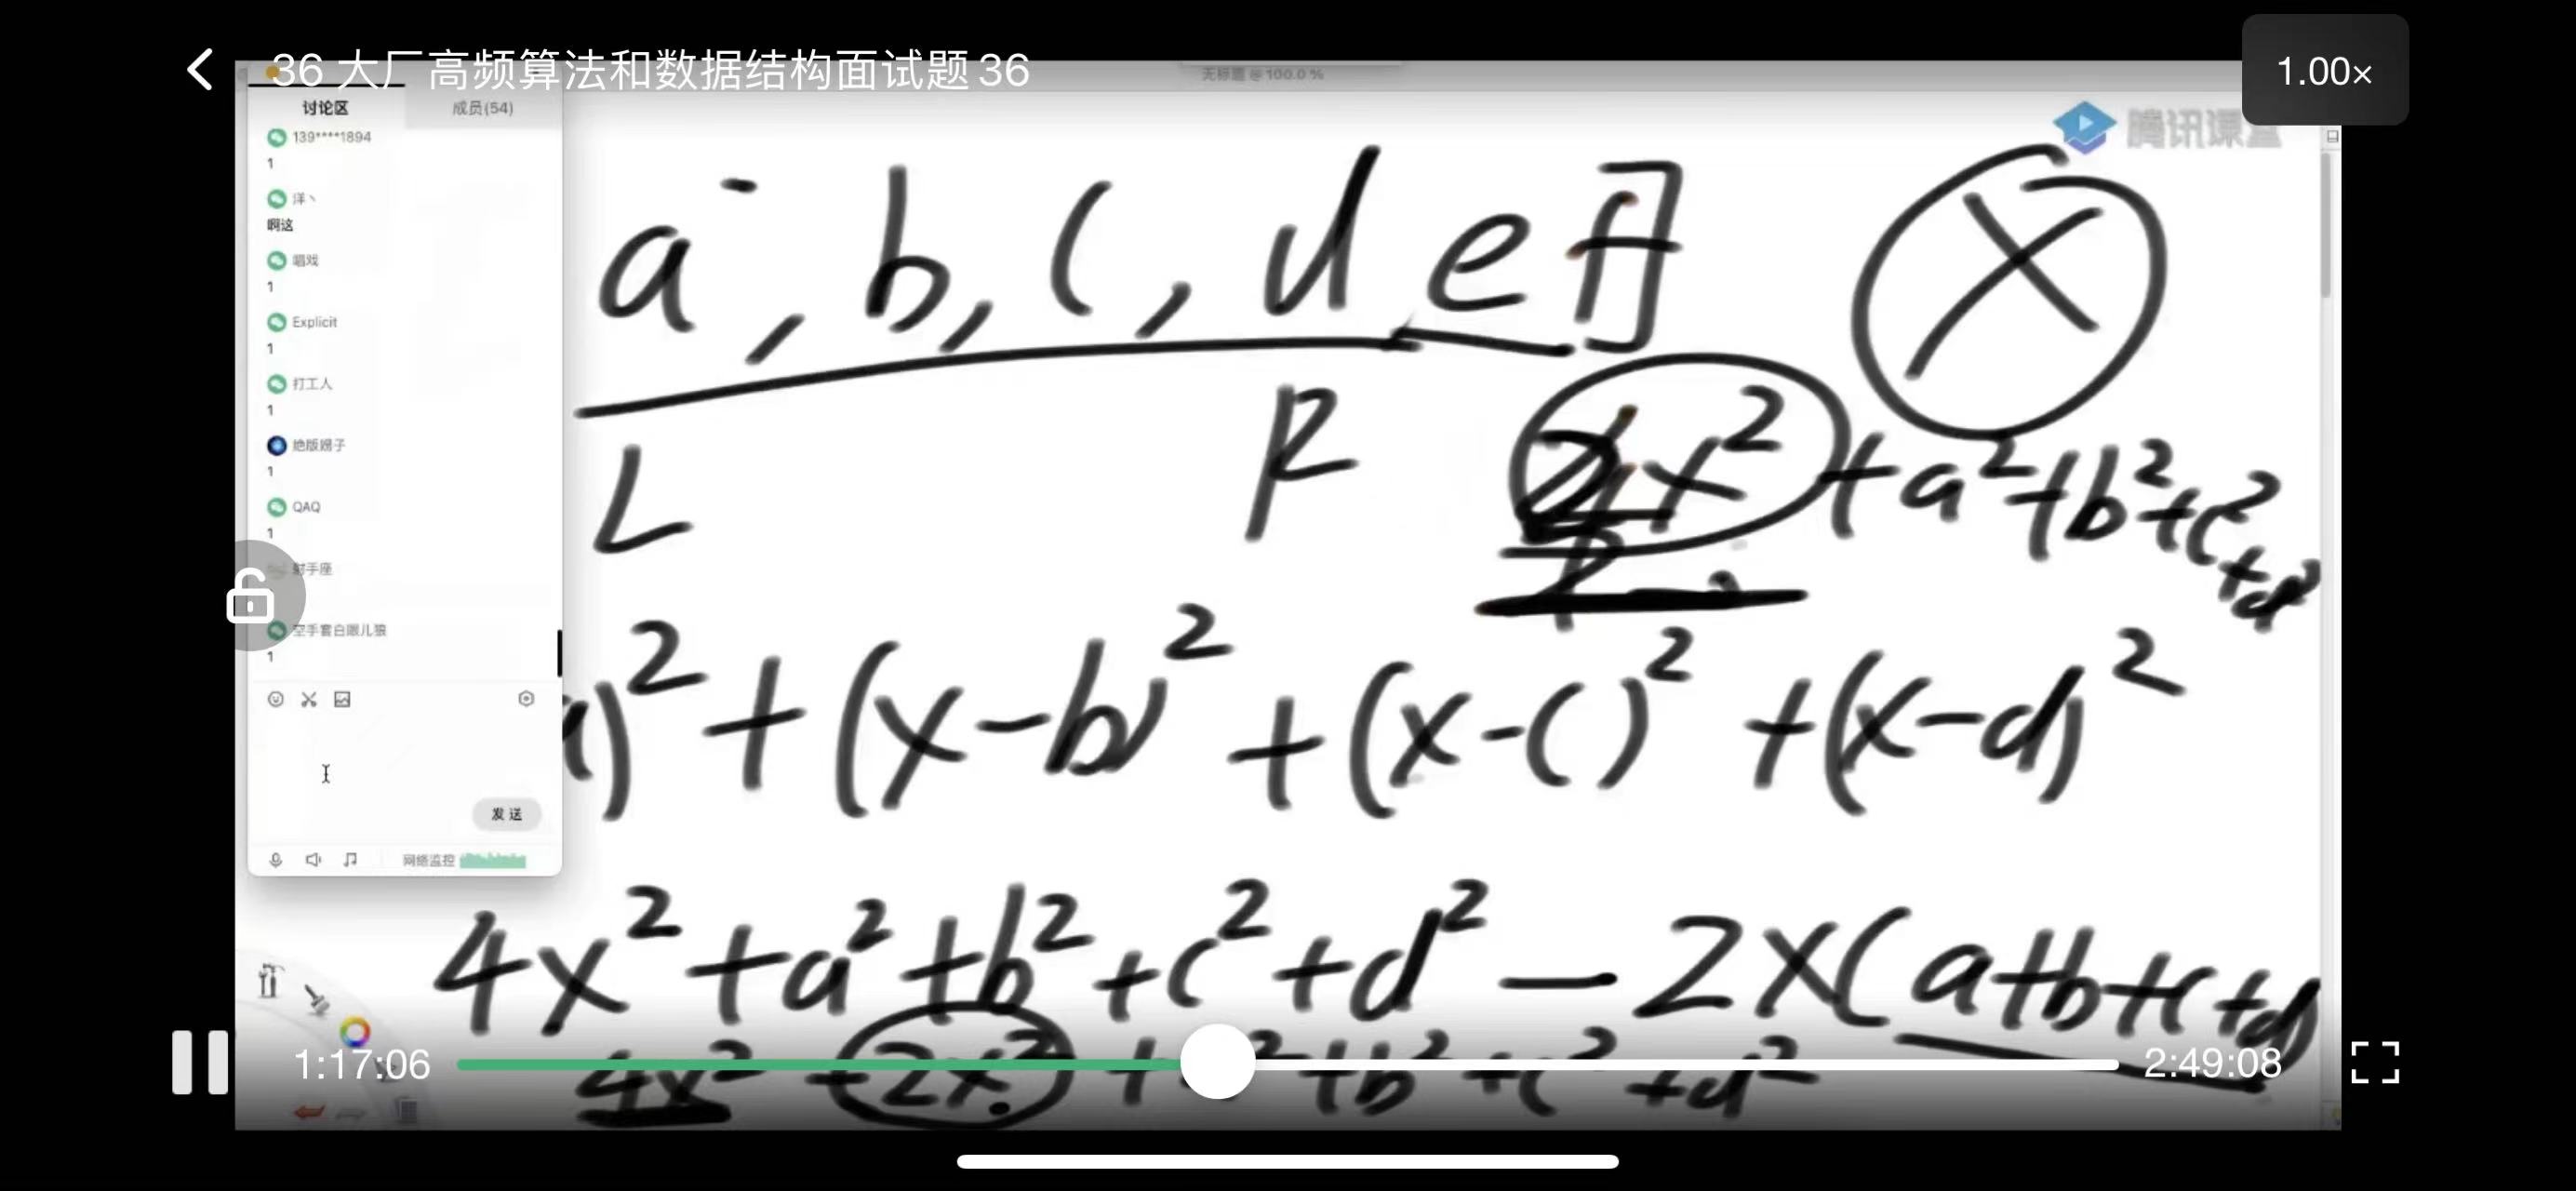 36 大厂高频算法和数据结构面试题36
1.00×
无标题 @ 100.0 %
讨论区
成员(54)
腾讯课堂
139****1894
1
洋丶
啊这
唱戏
1
Explicit
1
打工人
1
绝版嫚子
1
QAQ
1
射手座
空手套白眼儿狼
1
发 送
网络监控
a , b, c , d e f]
X
L
R
x² + a² + b² + c² + d²
)² + (x-b)² + (x-c)² + (x-d)²
4x² + a² + b² + c² + d² - 2x(a+b+c+d)
4x² -2x² + b² + c² + d²
1:17:06
2:49:08